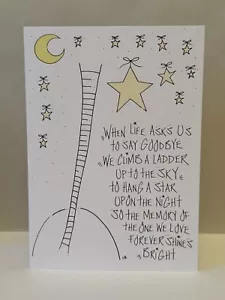 WHEN LIFE ASKS US
TO SAY GOODBYE
WE CLIMB A LADDER
UP TO THE SKY
TO HANG A STAR
UPON THE NIGHT
SO THE MEMORY OF
THE ONE WE LOVE
FOREVER SHINES
BRIGHT